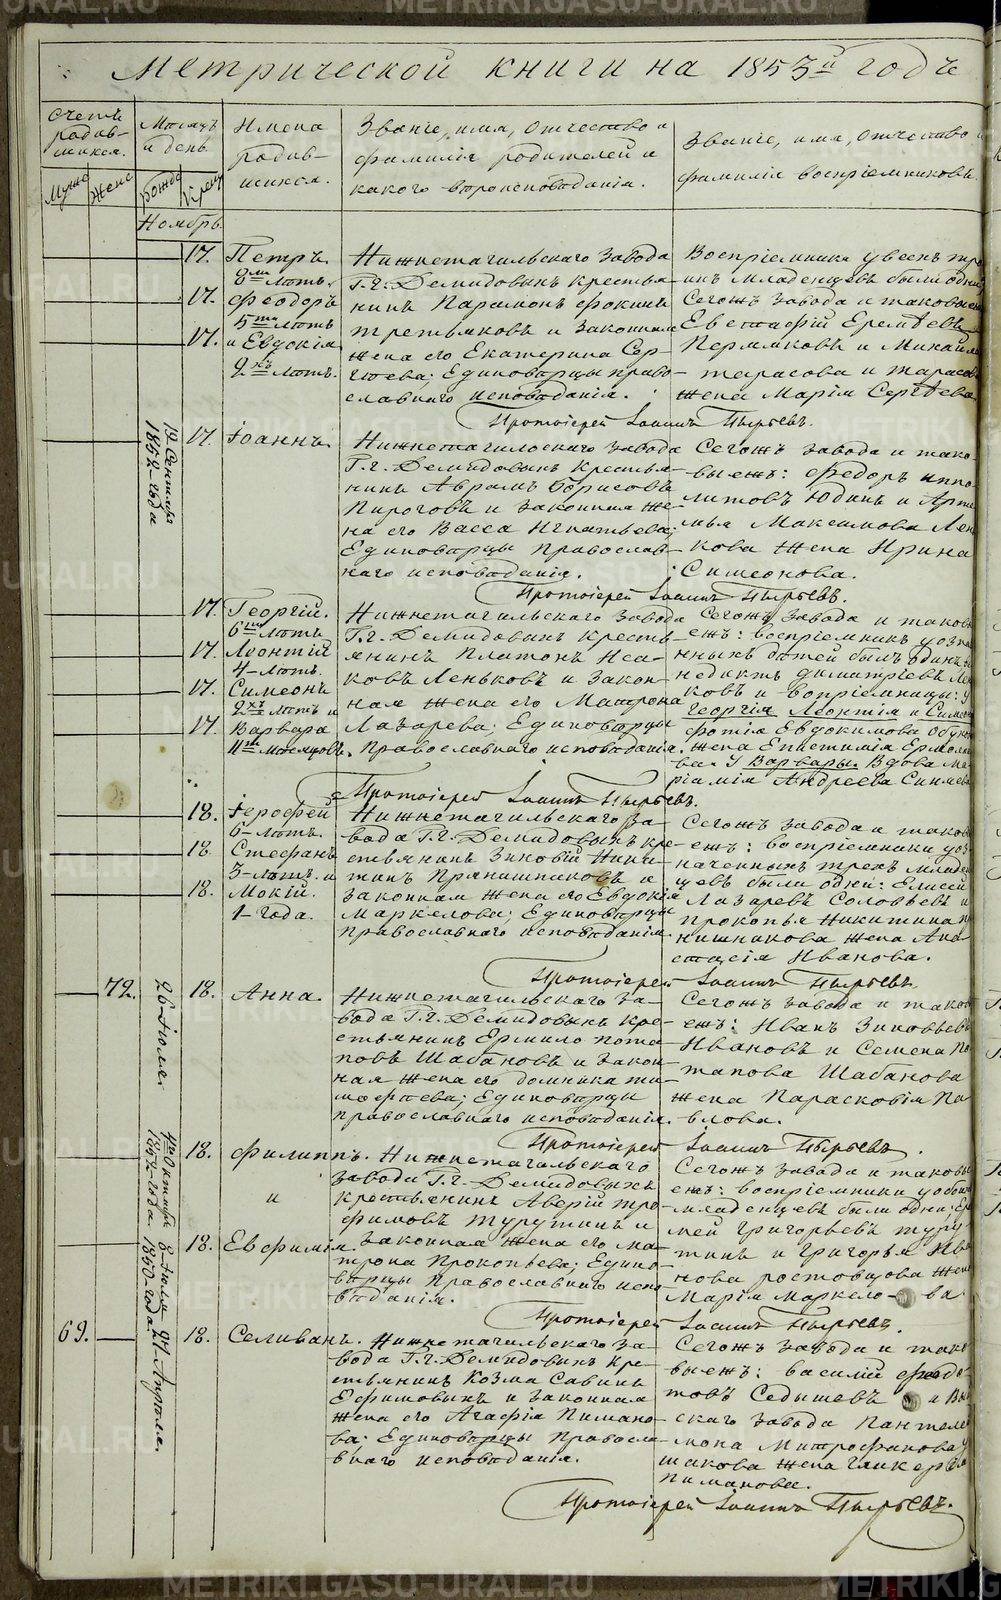 Метрической книги на 1853й годъ
Счетъ родив-
шихся.
Муже Жене
Мѣсяцъ
и день.
Рожде Крещ
Ноябрь.
Имена
родив-
шихся.
Званіе, имя, отчество и
фамилія родителей и
какого вѣроисповѣданія.
Званіе, имя, отчество и
фамилія воспріемниковъ.
17. Петръ.
8ми лѣтъ.
17. Феодоръ
5ти лѣтъ
17. и Евдокія
2хъ лѣтъ.
Нижнетагильскаго завода
Г.г. Демидовыхъ крестья-
нинъ Парамонъ Фокинъ
Третьяковъ и законная
жена его Екатерина Сер-
гѣева; Единовѣрцы право-
славнаго исповѣданія.
Воспріемники у всѣхъ тро
ихъ младенцевъ были одни
Сегожъ завода и таковыхъ
Евстафій Еремѣевъ
Пермяковъ и Михаила
Тарасова и Тарасова
жена Марія Сергѣева
Протоіерей Іоаннъ Пырьевъ.
19 Сентября
1852 года
17. Іоаннъ.
Нижнетагильскаго завода
Г.г. Демидовыхъ крестья-
нинъ Аврамъ Борисовъ
Пироговъ и законная же-
на его Васса Игнатьева;
Единовѣрцы православ-
наго исповѣданія.
Сегожъ завода и тако-
выежъ: Федоръ Иппо-
литовъ Юдинъ и Арте
мья Максимова Лен
кова жена Ирина
Симеонова.
Протоіерей Іоаннъ Пырьевъ.
17. Георгій.
6ти лѣтъ
17. Леонтій
4 лѣтъ.
17. Симеонъ
2хъ лѣтъ и
17. Варвара
11ти мѣсяцовъ.
Нижнетагильскаго завода
Г.г. Демидовыхъ кресть-
янинъ Платонъ Иса-
ковъ Леньковъ и закон-
ная жена его Матрона
Лазарева; Единовѣрцы
Православнаго исповѣданія.
Сегожъ завода и таков
ежъ: воспріемникъ у озна
нныхъ дѣтей былъ одинъ
недиктъ Димитріевъ Ле
ковъ и воспріемницы: у
Георгія Леонтія и Симе
фотія Евдокимова
жена Епистимія Ермола
ва. У Варвары. Вдова Ма
ріамія Андреева Синяева
Протоіерей Іоаннъ Пырьевъ.
18. Іерофей
6 лѣтъ.
18. Стефанъ
3 лѣтъ. и
18. Мокій.
1 года.
Нижнетагильскаго за-
вода Г.г. Демидовыхъ кре-
стьянинъ Зиновій Ники-
тинъ Пряничниковъ и
законная жена его Евдокія
Маркелова; Единовѣрцы
православнаго исповѣданія
Сегожъ завода и таков
ежъ: воспріемники у оз
наченныхъ трехъ младен
цевъ были одни: Елисей
Лазаревъ Соловьевъ и
Прокопья Никитина
нишникова жена Ана
стасія Иванова.
Протоіерей Іоаннъ Пырьевъ.
72. 26 Іюля. 18. Анна.
Нижнетагильскаго за-
вода Г.г. Демидовыхъ кре-
стьянинъ Ермило Пота-
повъ Шабановъ и закон-
ная жена его Домника Ти-
мофѣева; Единовѣрцы
православнаго исповѣданія.
Сегожъ завода и таков
ежъ: Иванъ Зиновьевъ
Ивановъ и Семена По
тапова Шабанова
жена Парасковія Па-
влова.
Протоіерей Іоаннъ Пырьевъ.
4го Октября
1857 года
18. Филиппъ.
и
8 Іюля
1850 года
18. Евфимія.
Нижнетагильскаго
завода Г.г. Демидовыхъ
крестьянинъ Аверій Тро-
фимовъ Турутинъ и
законная жена его Ма-
трона Прокопьева; Едино-
вѣрцы Православнаго испо-
вѣданія.
Сегожъ завода и таковы
ежъ: воспріемники у обоихъ
младенцевъ были одни: Ер
мей Григорьевъ Туру
тинъ и Григорья Ива
нова Ростовцова жена
Марія Маркело- ва
Протоіерей Іоаннъ Пырьевъ.
69. 21 Апрѣля. 18. Селиванъ.
Нижнетагильскаго за-
вода Г.г. Демидовыхъ кре-
стьянинъ Козма Савинъ
Ефимовыхъ и законная
жена его Агафія Пимано-
ва; Единовѣрцы Правосла-
внаго исповѣданія.
Сегожъ завода и тако
выежъ: Василій Федо-
товъ Седышевъ и Вы
скаго завода Пантеле
мона Митрофанова
шакова жена Гликерія
Пиманова.
Протоіерей Іоаннъ Пырьевъ.
METRIKI.GASO-URAL.RU